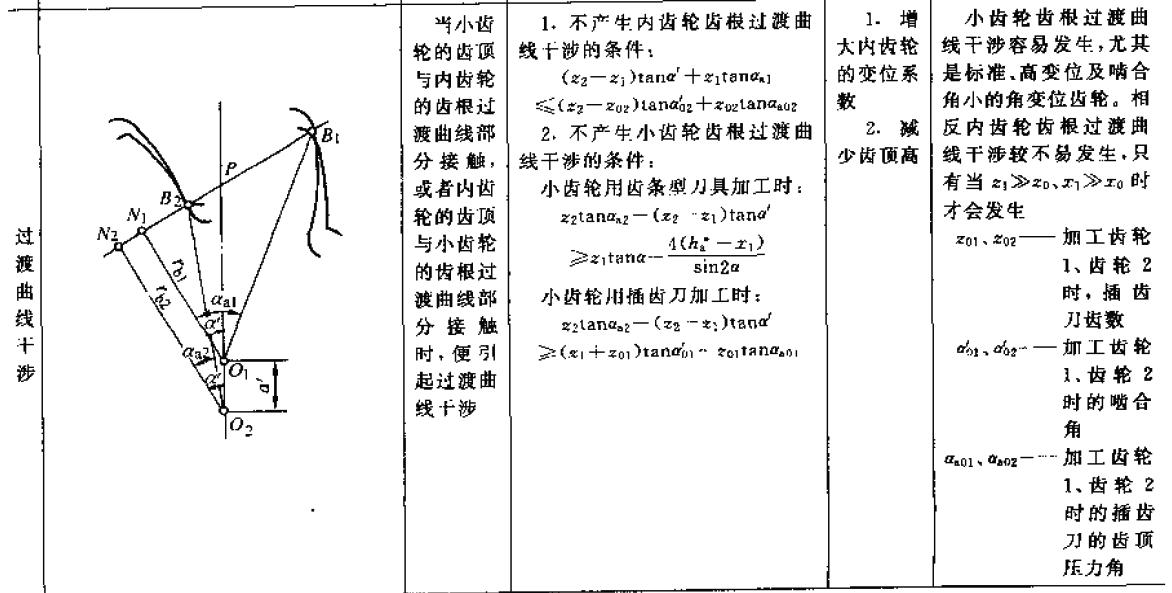 过
渡
曲
线
干
涉
B₁
P
B₂
N₁
N₂
r_b1
r_b2
α_a1
α′
α_a2
α′
O₁
a′
O₂
当小齿
轮的齿顶
与内齿轮
的齿根过
渡曲线部
分接触,
或者内齿
轮的齿顶
与小齿轮
的齿根过
渡曲线部
分接触
时,便引
起过渡曲
线干涉
1. 不产生内齿轮齿根过渡曲
线干涉的条件:
(z₂−z₁)tanα′+z₁tanα_a1
≤(z₂−z₀₂)tanα′₀₂+z₀₂tanα_a02
2. 不产生小齿轮齿根过渡曲
线干涉的条件:
小齿轮用齿条型刀具加工时:
z₂tanα_a2−(z₂−z₁)tanα′
≥z₁tanα−4(h_a*−x₁)/sin2α
小齿轮用插齿刀加工时:
z₂tanα_a2−(z₂−z₁)tanα′
≥(z₁+z₀₁)tanα′₀₁−z₀₁tanα_a01
1. 增
大内齿轮
的变位系
数
2. 减
少齿顶高
小齿轮齿根过渡曲
线干涉容易发生,尤其
是标准、高变位及啮合
角小的角变位齿轮。相
反内齿轮齿根过渡曲
线干涉较不易发生,只
有当 z₁≫z₀、x₁≫x₀ 时
才会发生
z₀₁、z₀₂—— 加工齿轮
1、齿轮 2
时,插齿
刀齿数
α′₀₂、α′₀₂—— 加工齿轮
1、齿轮 2
时的啮合
角
α_a01、α_a02—— 加工齿轮
1、齿轮 2
时的插齿
刀的齿顶
压力角